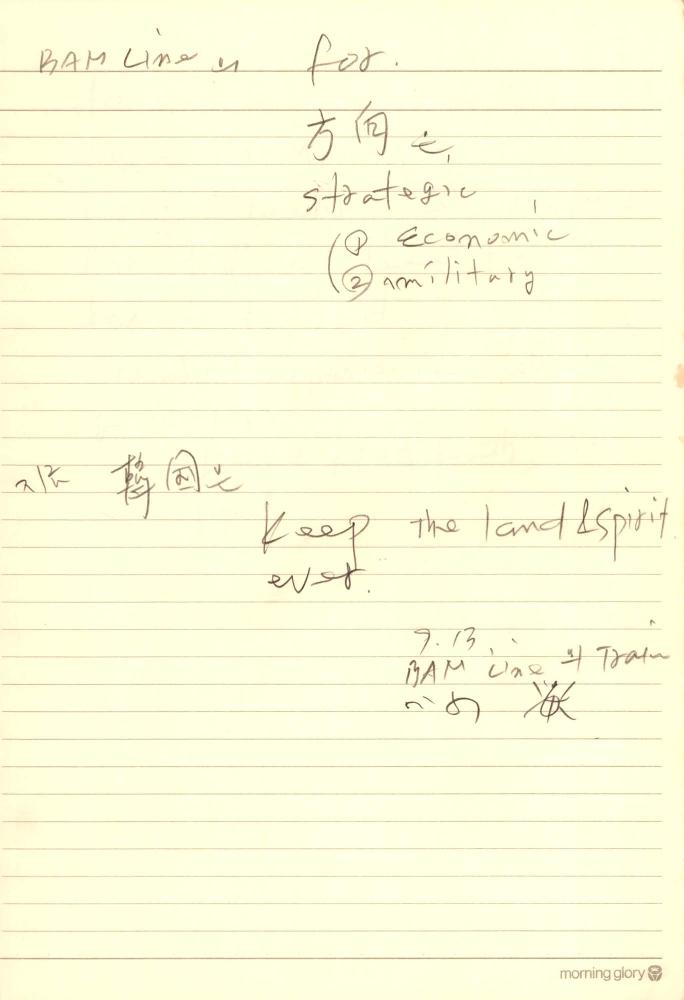 BAM Line for.
方向은,
strategic
① economic
② military
지금 韓國은
Keep the land & spirit
ever.
9.13
BAM Line의 Train
에서
morning glory